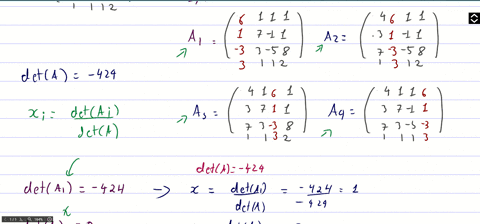 1 1 1 2
A1 = ( 6 1 1 1
1 7 -1 1
-3 3 -5 8
3 1 1 2 )
A2= ( 4 6 1 1
3 1 -1 1
7 -3 -5 8
1 3 1 2 )
det(A) = -429
xi = det(Ai) / det(A)
A3 = ( 4 1 6 1
3 7 1 1
7 3 -3 8
1 1 3 2 )
A4 = ( 4 1 1 6
3 7 -1 1
7 3 -5 -3
1 1 1 3 )
det(A)=-429
det(A1) = -424 → x = det(A1) / det(A) = -424 / -429 = 1
x